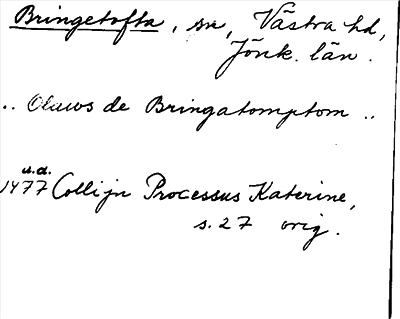 Bringetofta, sn, Västra hd,
Jönk. län.
.. Olauus de Bringatomptom ..
u.d.
1477 Collijn Processus Katerine,
s. 27 orig.